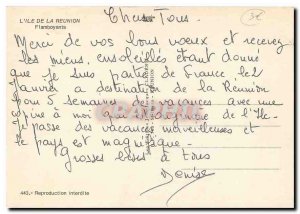 L'ILE DE LA REUNION
Flamboyants
Chers Tous.
Merci de vos bons voeux et recevez
les miens, ensoleillés étant donné
que je suis partie de France le 2
Janvier a destination de la Réunion
pour 5 semaines de vacances avec une
copine à moi qui est originaire de l'Ile
passe des vacances merveilleuses et
le pays est magnifique.
grosses bises à tous
Denise
443.- Reproduction interdite